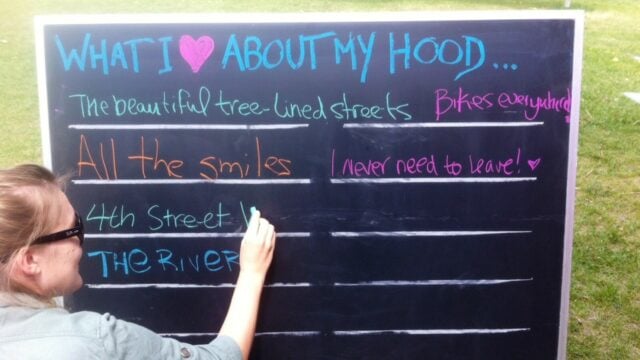 WHAT I ♥ ABOUT MY HOOD...
The beautiful tree-lined streets Bikes everywhere!
All the smiles I never need to leave! ♥
4th Street
THE RIVER